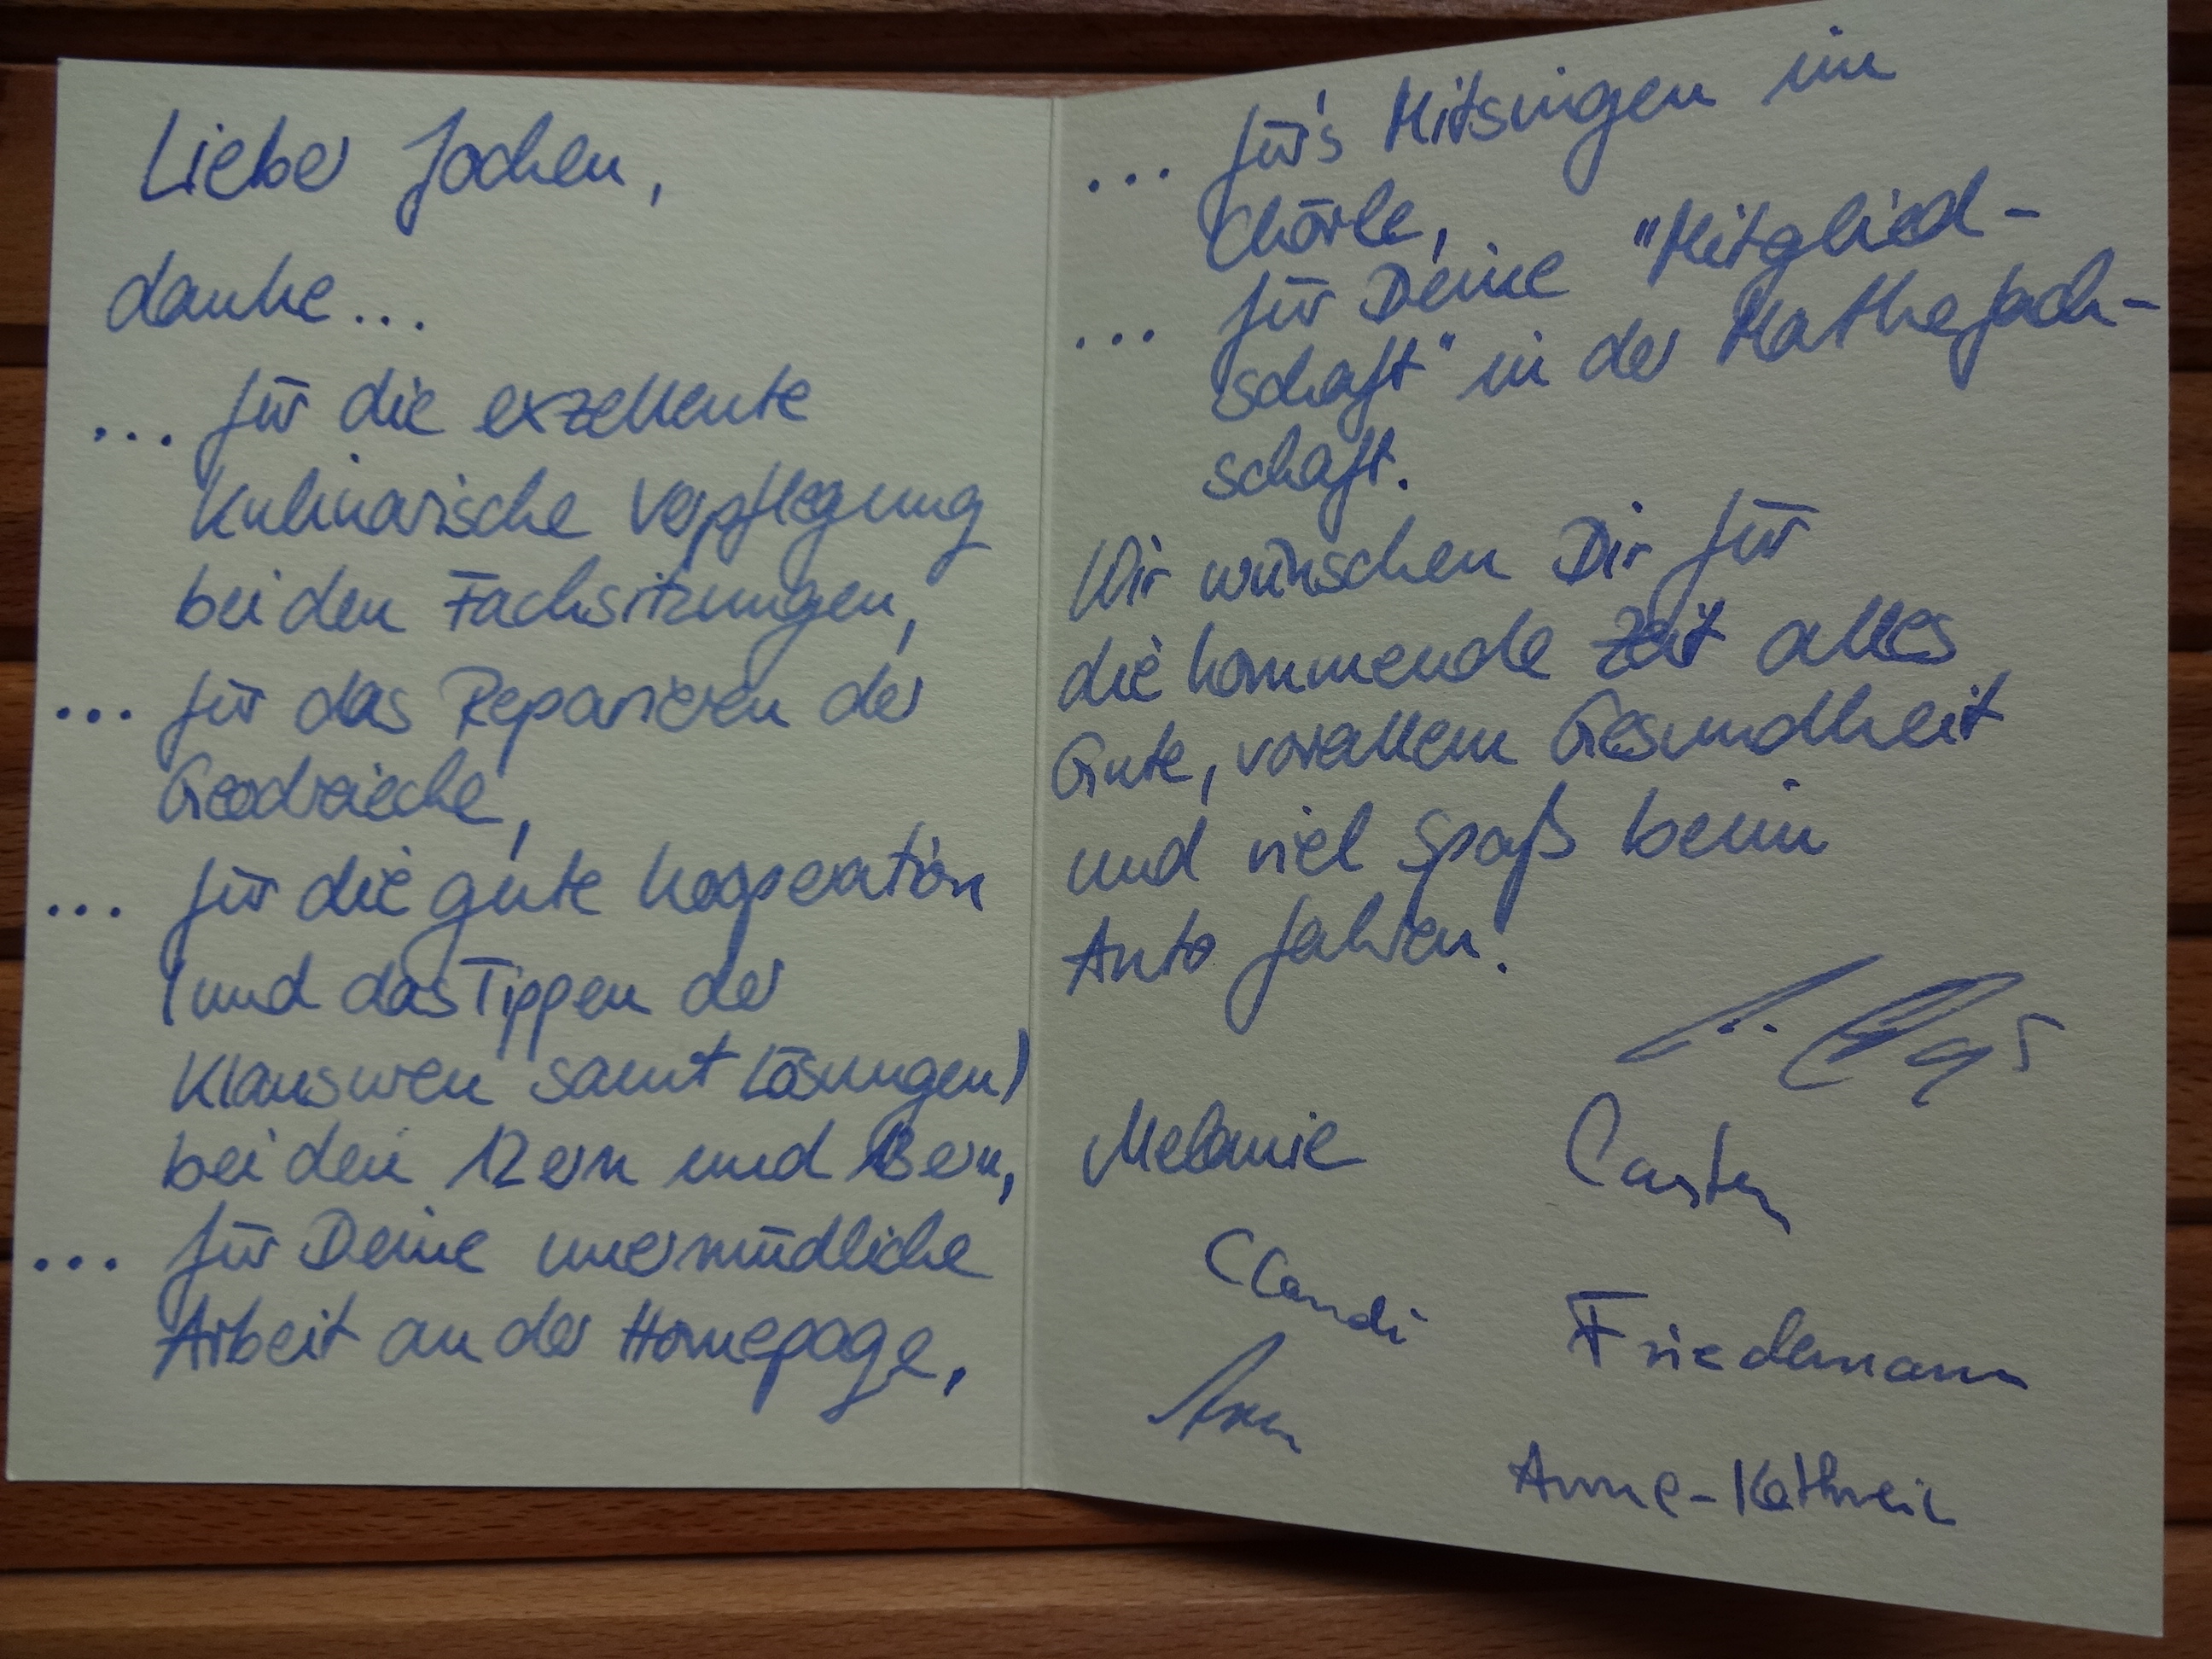 Lieber Jochen,
danke...
... für die exzellente
kulinarische Verpflegung
bei den Fachsitzungen,
... für das Reparieren der
Geodreiecke,
... für die gute Kooperation
(und das Tippen der
Klausuren samt Lösungen)
bei den 12ern und 13ern,
... für Deine unermüdliche
Arbeit an der Homepage,
... für's Mitsingen im
Chörle,
... für Deine "Mitglied-
schaft" in der Mathefach-
schaft.
Wir wünschen Dir für
die kommende Zeit alles
Gute, vorallem Gesundheit
und viel Spaß beim
Auto fahren!
Melanie Carsten
Claudi
Friedemann
Anne-Kathrein